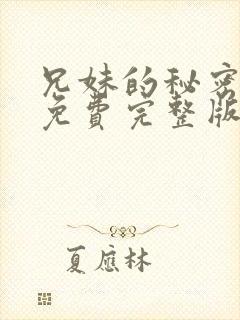 兄妹的秘密
免费完整版
夏应林